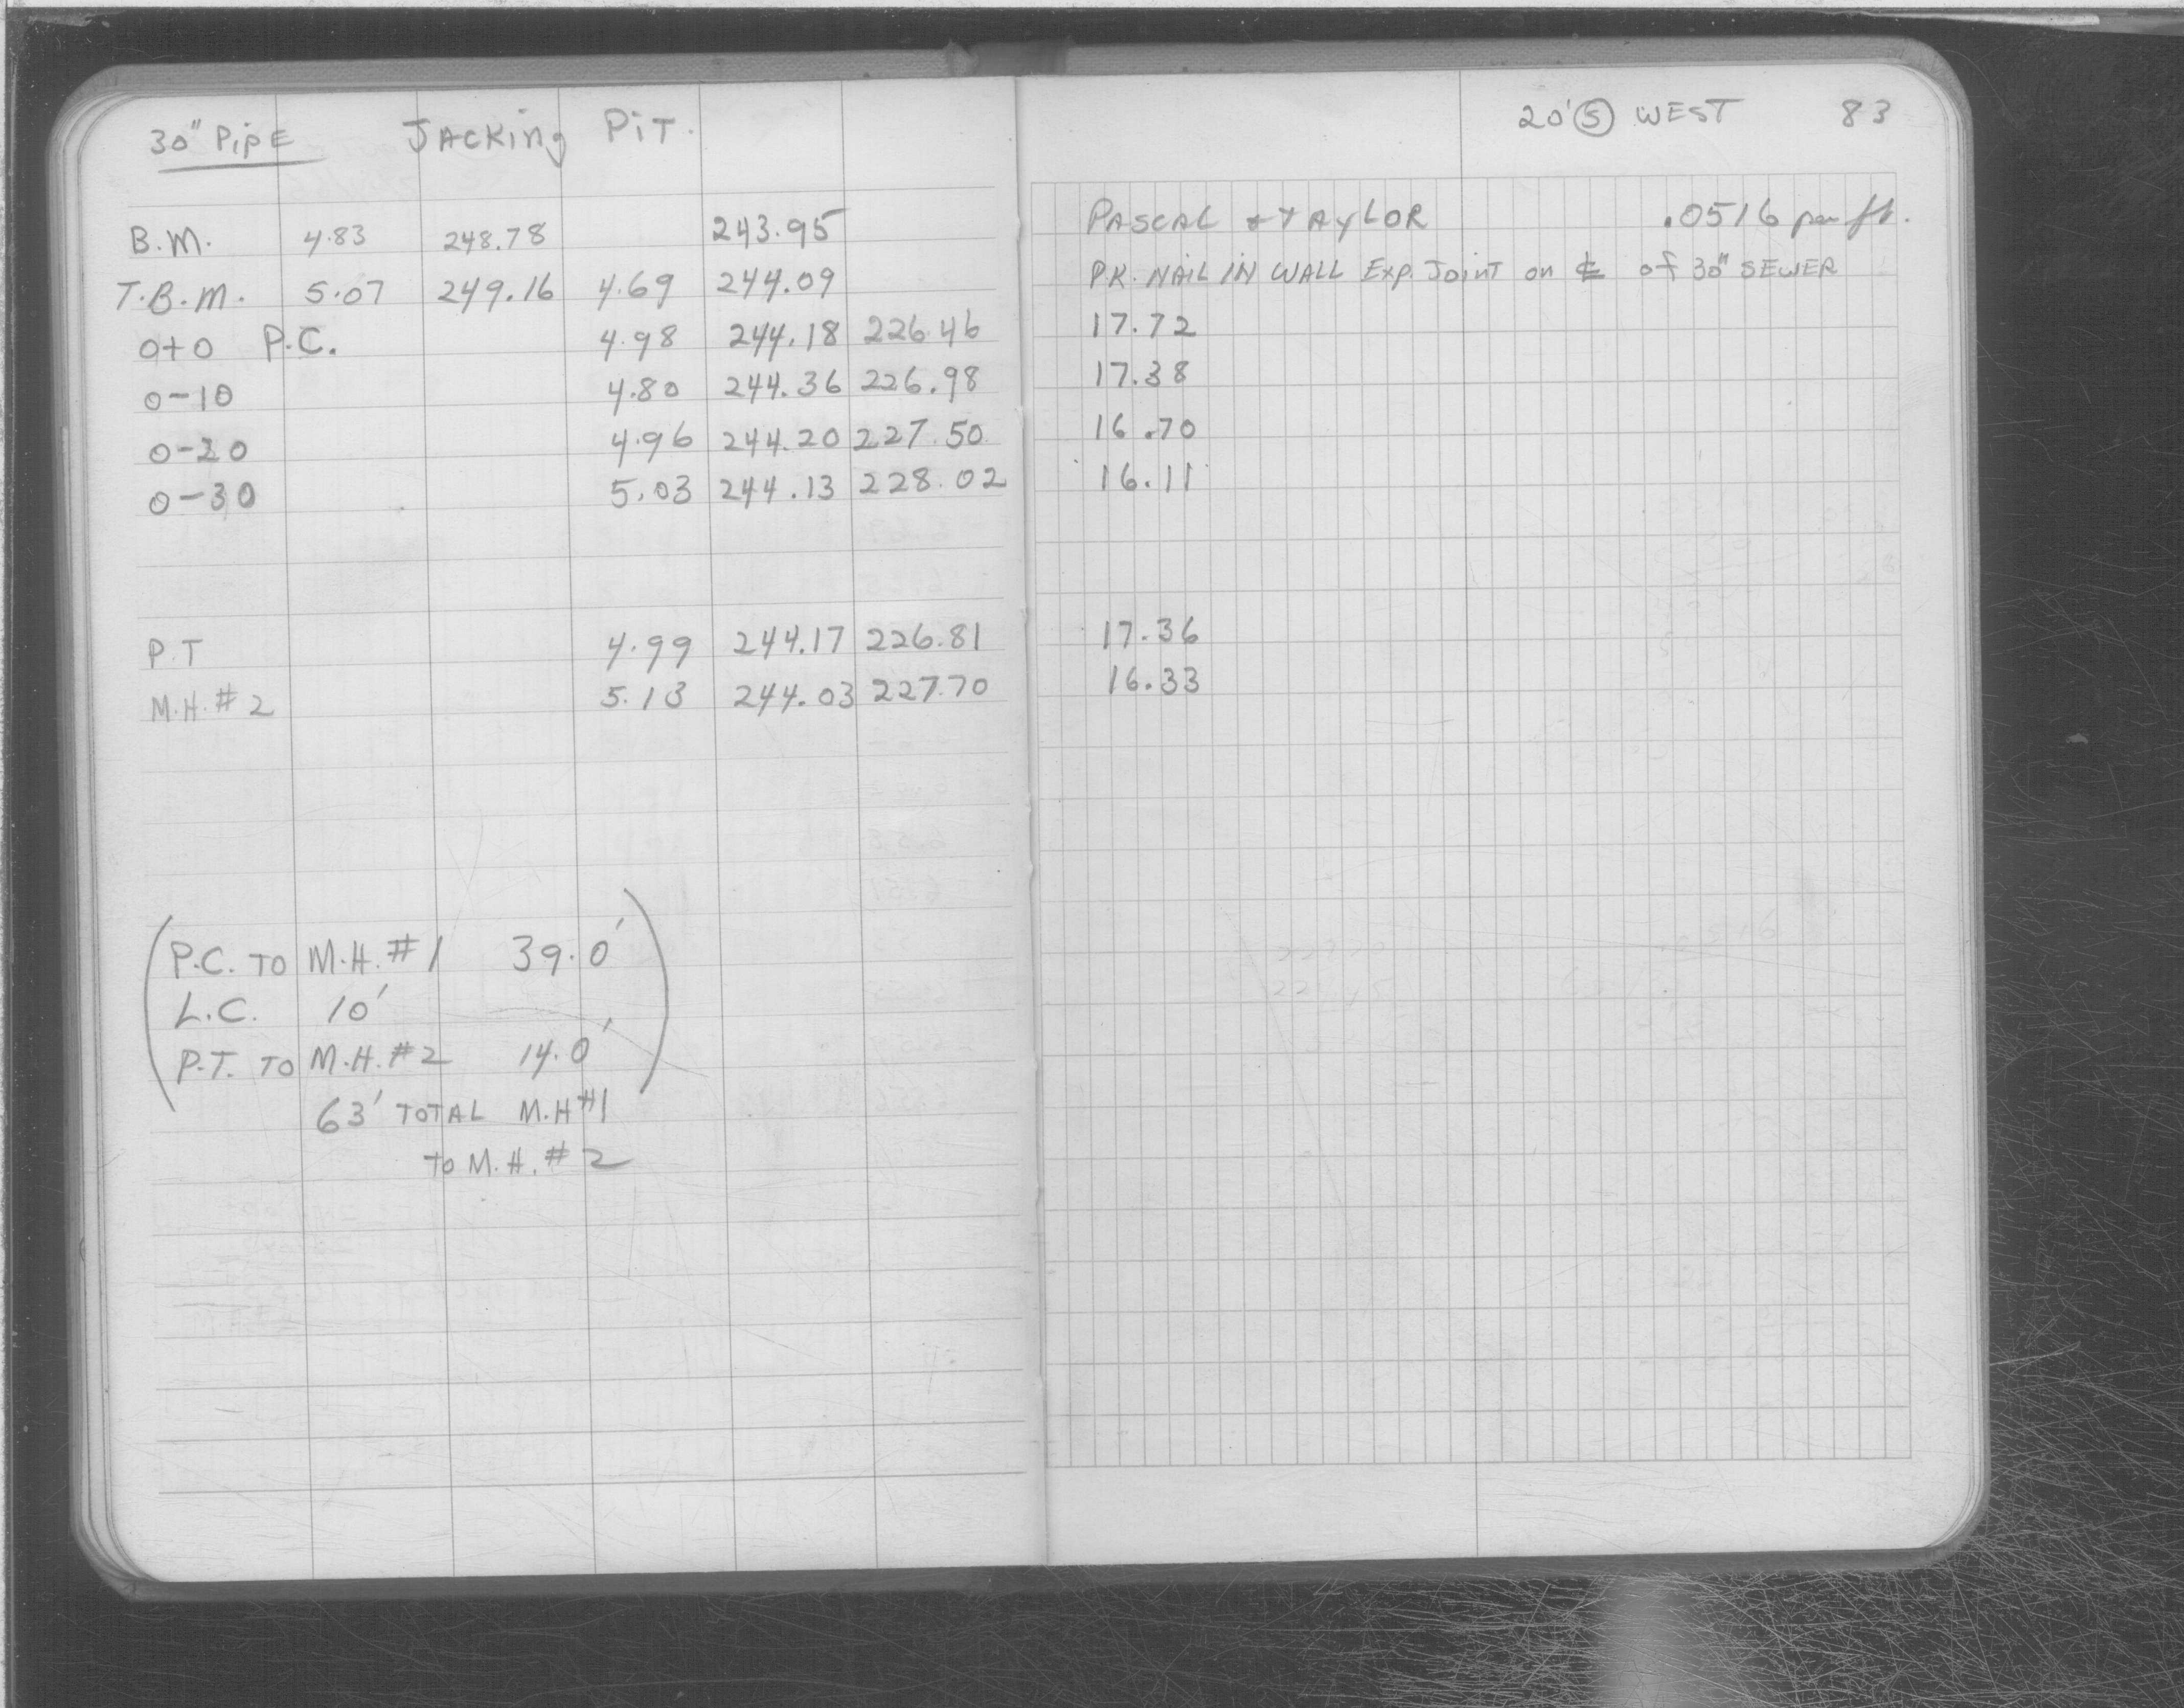 30" PipE JACKing PiT.
B.M. 4.83 248.78 243.95
T.B.M. 5.07 249.16 4.69 244.09
0+0 P.C. 4.98 244.18 226.46
0-10 4.80 244.36 226.98
0-20 4.96 244.20 227.50
0-30 5.03 244.13 228.02
P.T 4.99 244.17 226.81
M.H.#2 5.13 244.03 227.70
P.C. TO M.H.#1 39.0'
L.C. 10'
P.T. TO M.H.#2 14.0'
63' TOTAL M.H#1
TO M.H.#2
20' Ⓢ WEST 83
PASCAL + TAYLOR .0516 per ft.
PK. NAIL IN WALL Exp. JOINT on ℄ of 30" SEWER
17.72
17.38
16.70
16.11
17.36
16.33